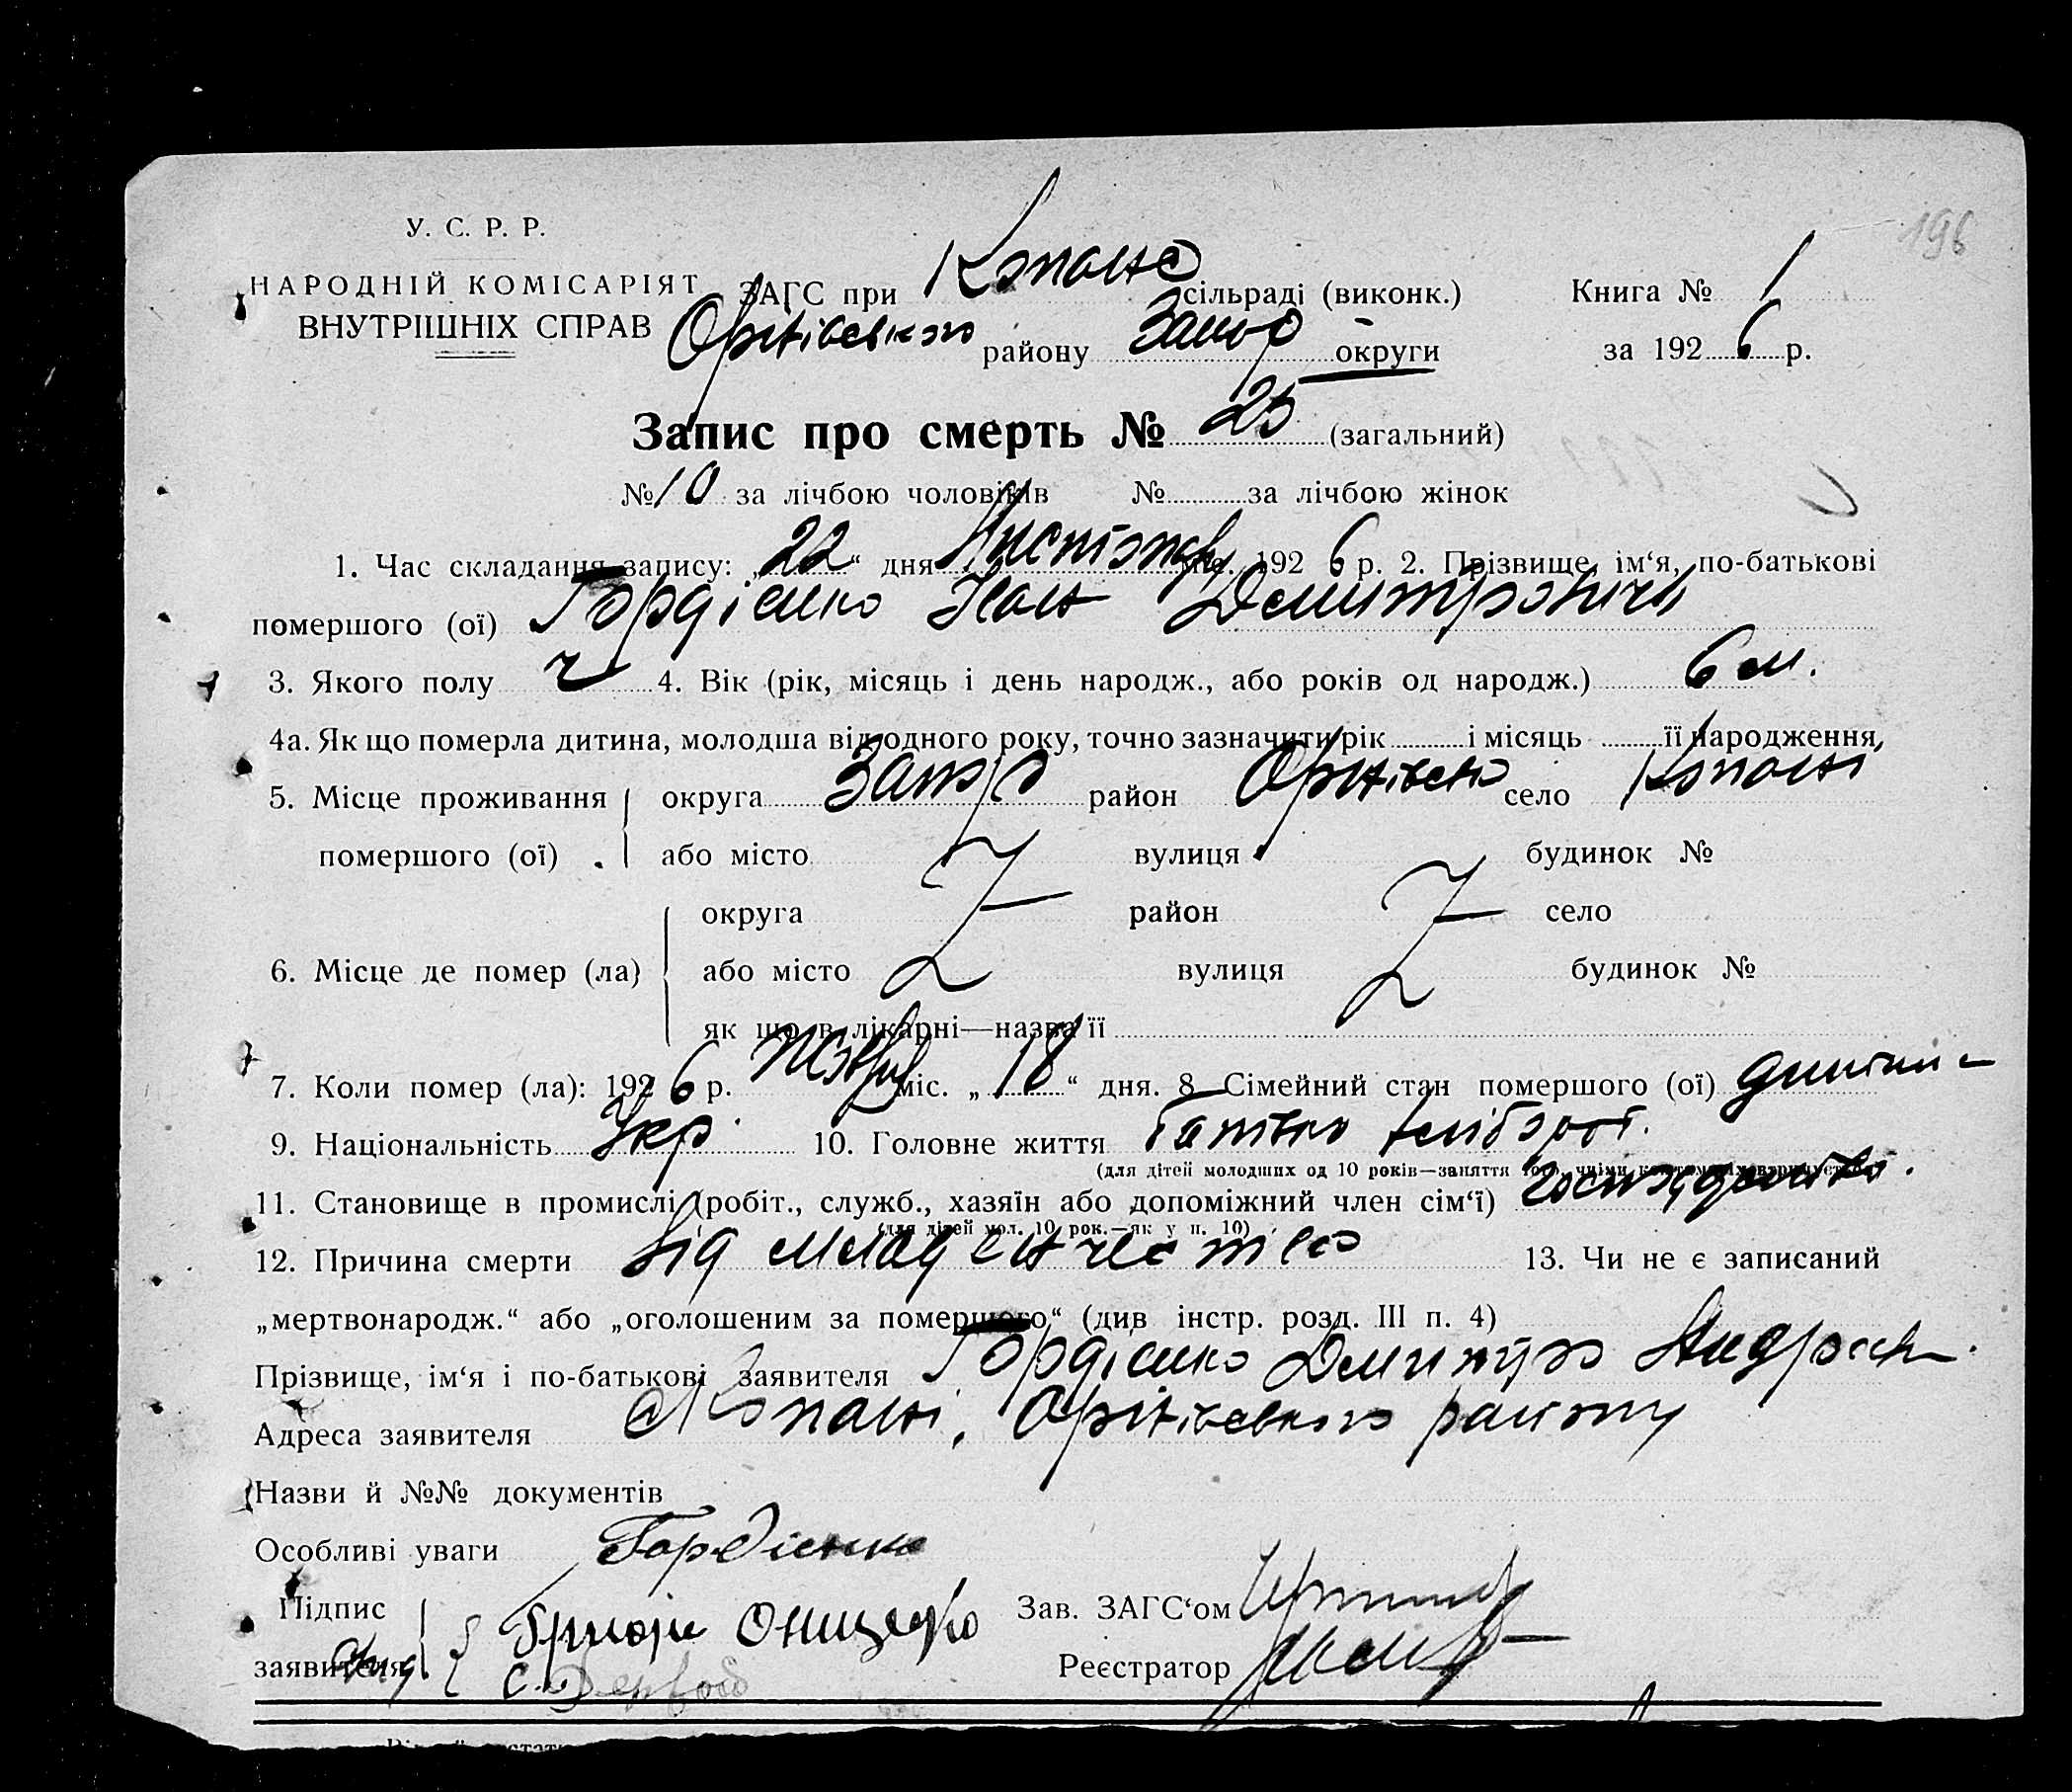 196
У. С. Р. Р.
НАРОДНІЙ КОМІСАРІЯТ
ВНУТРІШНІХ СПРАВ
ЗАГС при Копане сільраді (виконк.)
Оріхівського району Запор округи
Книга № 1
за 1926 р.
Запис про смерть № 25 (загальний)
№ 10 за лічбою чоловіків № за лічбою жінок
1. Час складання запису: „22“ дня Листопаду 1926 р. 2. Прізвище, ім‘я, по-батькові
помершого (ої) Гордієнко Іван Демитровичь
3. Якого полу ч 4. Вік (рік, місяць і день народж., або років од народж.) 6 м.
4а. Як що померла дитина, молодша від одного року, точно зазначити рік і місяць її народження,
5. Місце проживання округа Запор район Оріхівськ село Копані
помершого (ої) або місто вулиця будинок №
округа район село
6. Місце де помер (ла) або місто вулиця будинок №
як що в лікарні—назва її
7. Коли помер (ла): 1926 р. Жовт міс. „18“ дня. 8 Сімейний стан помершого (ої) дитина
9. Національність Укр. 10. Головне життя Батько хлібороб.
(для дітей молодших од 10 років—заняття того, чиїми коштами їх утримується)
11. Становище в промислі (робіт., служб., хазяїн або допоміжний член сім‘ї)
(для дітей мол. 10 рок.—як у п. 10)
12. Причина смерти від младенчества 13. Чи не є записаний
„мертвонародж.“ або „оголошеним за помершого“ (див інстр. розд. III п. 4)
Прізвище, ім‘я і по-батькові заявителя Гордієнко Дмитро Андреев.
Адреса заявителя с Копані, Оріхівського району
Назви й №№ документів
Особливі уваги Гордієнко
Підпис Онищенко Зав. ЗАГС‘ом
заявителя Реєстратор